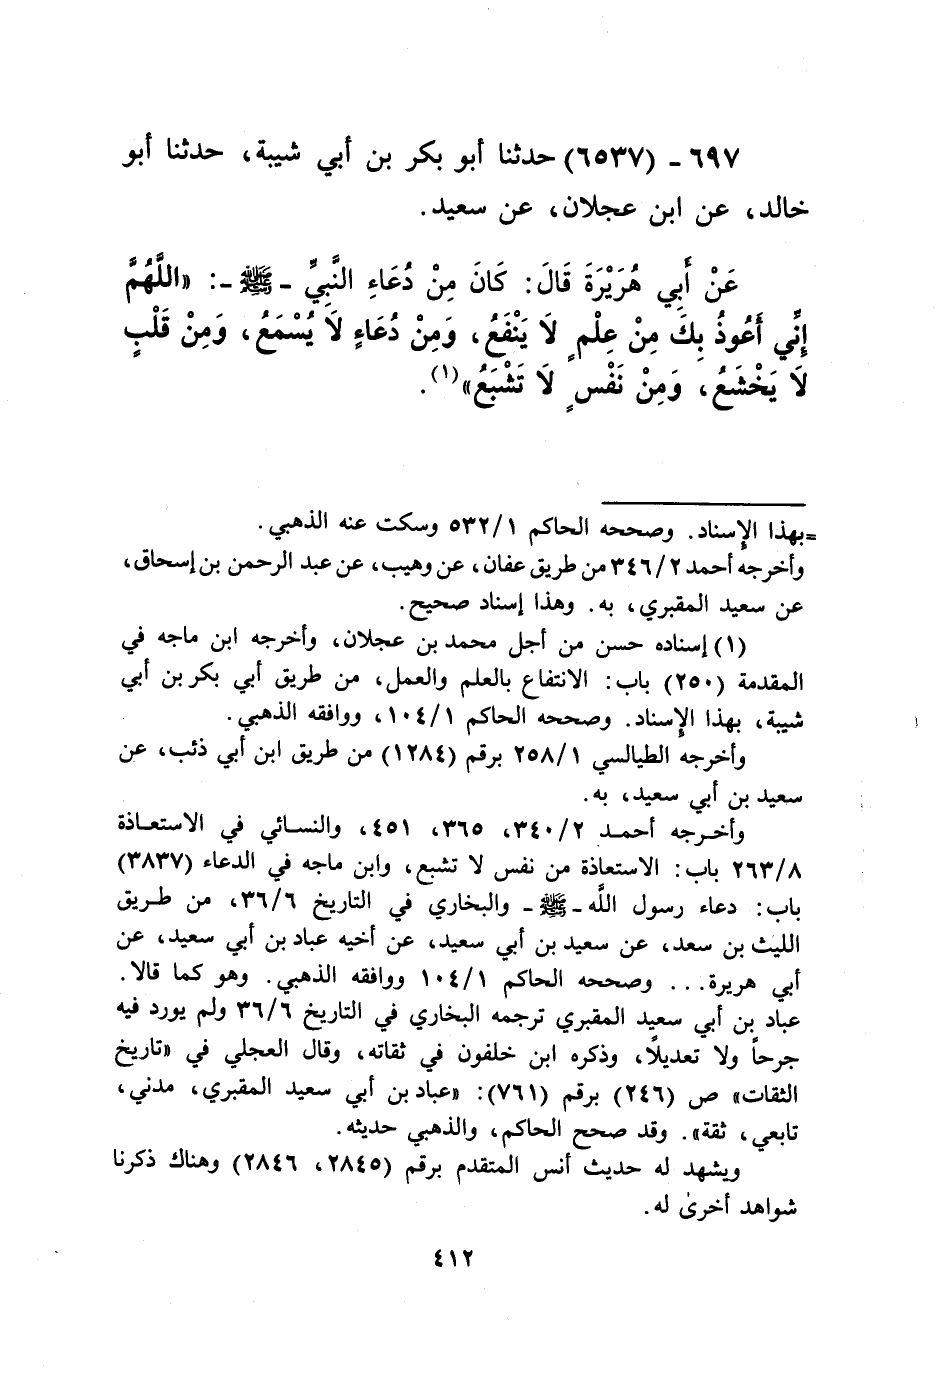 ٦٩٧ - (٦٥٣٧) حدثنا أبو بكر بن أبي شيبة، حدثنا أبو
خالد، عن ابن عجلان، عن سعيد.
عَنْ أَبِي هُرَيْرَةَ قَالَ: كَانَ مِنْ دُعَاءِ النَّبِيِّ - ﷺ -: «اللَّهُمَّ
إِنِّي أَعُوذُ بِكَ مِنْ عِلْمٍ لَا يَنْفَعُ، وَمِنْ دُعَاءٍ لَا يُسْمَعُ، وَمِنْ قَلْبٍ
لَا يَخْشَعُ، وَمِنْ نَفْسٍ لَا تَشْبَعُ»(١).
=بهذا الإسناد. وصححه الحاكم ٥٣٢/١ وسكت عنه الذهبي.
وأخرجه أحمد ٣٤٦/٢ من طريق عفان، عن وهيب، عن عبد الرحمن بن إسحاق،
عن سعيد المقبري، به. وهذا إسناد صحيح.
(١) إسناده حسن من أجل محمد بن عجلان، وأخرجه ابن ماجه في
المقدمة (٢٥٠) باب: الانتفاع بالعلم والعمل، من طريق أبي بكر بن أبي
شيبة، بهذا الإسناد. وصححه الحاكم ١٠٤/١، ووافقه الذهبي.
وأخرجه الطيالسي ٢٥٨/١ برقم (١٢٨٤) من طريق ابن أبي ذئب، عن
سعيد بن أبي سعيد، به.
وأخرجه أحمد ٣٤٠/٢، ٣٦٥، ٤٥١، والنسائي في الاستعاذة
٢٦٣/٨ باب: الاستعاذة من نفس لا تشبع، وابن ماجه في الدعاء (٣٨٣٧)
باب: دعاء رسول اللَّه - ﷺ - والبخاري في التاريخ ٣٦/٦، من طريق
الليث بن سعد، عن سعيد بن أبي سعيد، عن أخيه عباد بن أبي سعيد، عن
أبي هريرة... وصححه الحاكم ١٠٤/١ ووافقه الذهبي. وهو كما قالا.
عباد بن أبي سعيد المقبري ترجمه البخاري في التاريخ ٣٦/٦ ولم يورد فيه
جرحاً ولا تعديلًا، وذكره ابن خلفون في ثقاته، وقال العجلي في «تاريخ
الثقات» ص (٢٤٦) برقم (٧٦١): «عباد بن أبي سعيد المقبري، مدني،
تابعي، ثقة». وقد صحح الحاكم، والذهبي حديثه.
ويشهد له حديث أنس المتقدم برقم (٢٨٤٥، ٢٨٤٦) وهناك ذكرنا
شواهد أخرىٰ له.
٤١٢